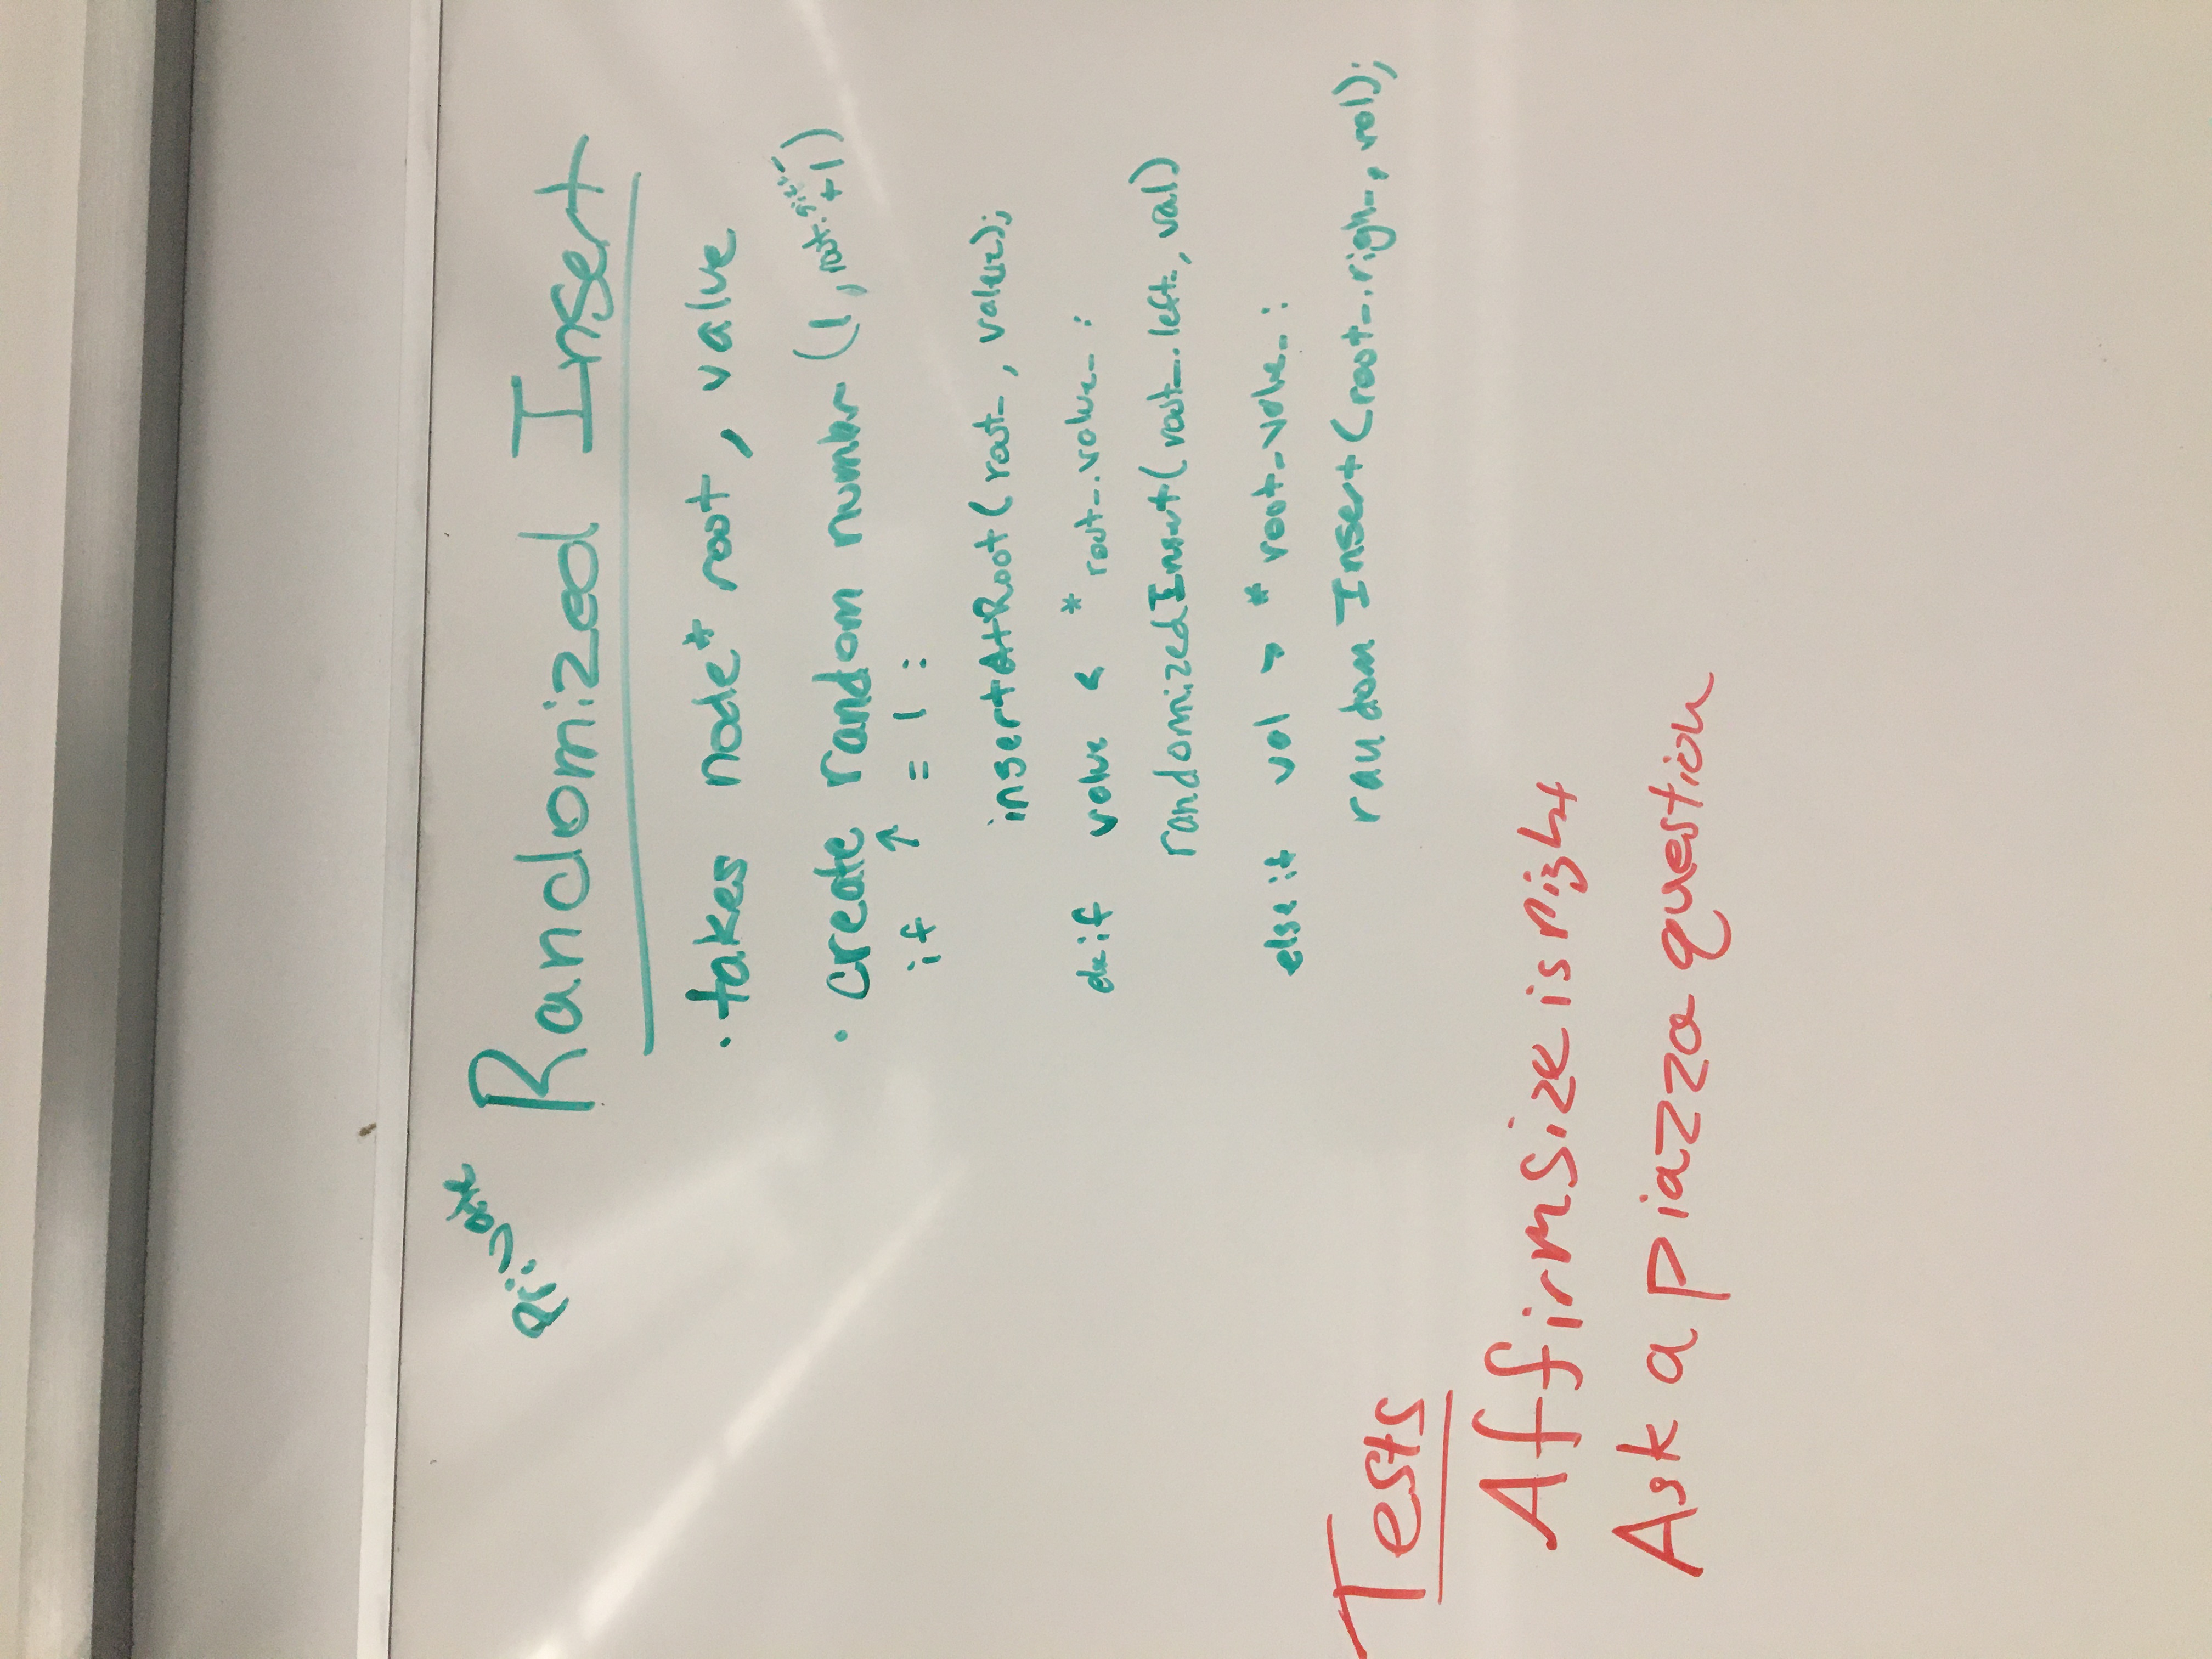 Private
Randomized Insert
· takes node* root, value
· create random number (1, root.size_ +1)
if ↑ = 1 :
insertAtRoot( root_ , value);
else if value < * root_.value_ :
randomizedInsert( root_.left_, val)
else if val > * root_value_ :
random Insert (root_.righ_, val);
Tests
Affirm size is right
Ask a piazza question